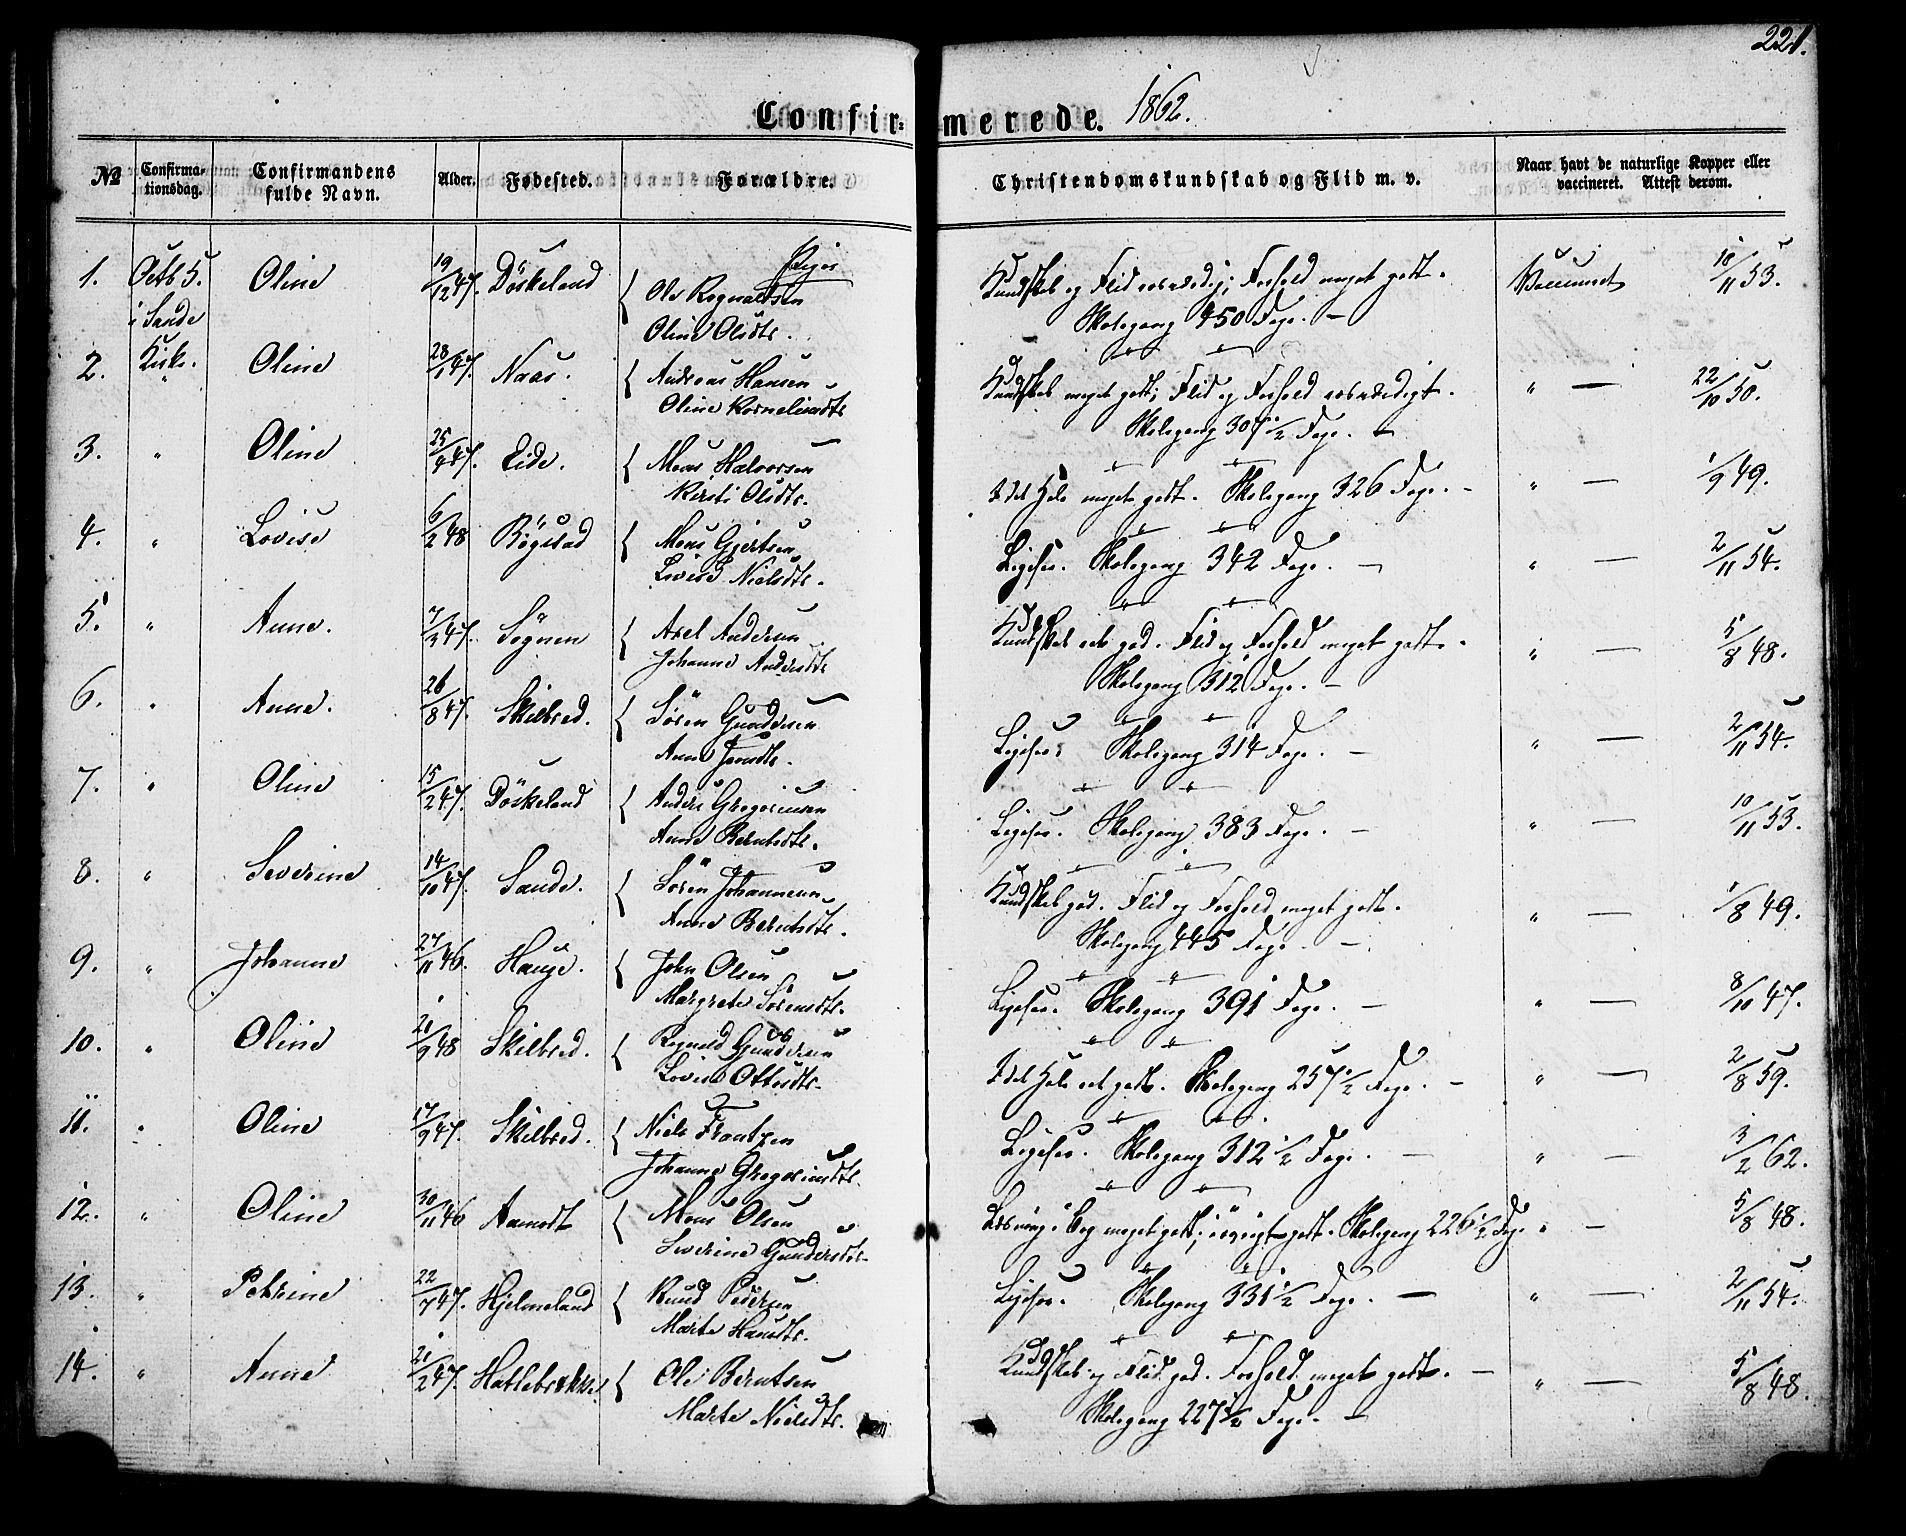 221.
Confir- merede. 1862.
№ Confirma-tionsdag. Confirmandens fulde Navn. Alder. Fødested. Forældre. Christendomskundskab og Flid m. v. Naar havt de naturlige Kopper eller vaccineret. Attest derom.
Piger
1. Octb 5. Oline 19/12 47. Döskeland { Ole Rognaldsen Kundskab og Flid roesværdig; Forhold meget godt. Vaccineret 10/11 53.
i Sande Oline Olsdtr. Skolegang 450 Dage. —
Kirke.
2. " Oline 28/1 47. Naas. { Andreas Hansen Kundskab meget godt; Flid og Forhold roesværdigt. " — 22/10 50.
Oline Korneliusdtr Skolegang 307 1/2 Dage. —
3. " Oline 25/4 47. Eide. { Mons Halvorsen I det Hele meget godt. Skolegang 326 Dage. — " — 1/9 49.
Kirsti Olsdtr.
4. " Lovise 6/2 48 Bögstad { Mons Gjertsen Ligesaa. Skolegang 342 Dage. — " — 2/11 54.
Lovise Nielsdtr.
5. " Anne. 7/3 47. Sögnen { Axel Andersen Kundskab god. Flid og Forhold meget godt. " — 5/8 48.
Johanne Andersdtr Skolegang 312 Dage. —
6. " Anne. 26/8 47. Skilbred. { Sören Gundersen Ligesaa. Skolegang 314 Dage. — " — 2/11 54.
Anne Jonsdtr.
7. " Oline 15/2 47. Döskeland { Anders Gregoriusen Ligesaa. Skolegang 383 Dage. — " — 10/11 53.
Anne Berntsdtr.
8. " Severine 14/10 47. Sande. { Sören Johannesen Kundskab god. Flid og Forhold meget godt. " — 1/8 49.
Anne Berntsdtr. Skolegang 445 Dage. —
9. " Johanne 27/11 46. Hauge. { John Olsen Ligesaa. Skolegang 391 Dage. — " — 8/10 47.
Margrete Sörensdtr.
10. " Oline 21/9 48 Skilbred. { Rognald Gundersen I det Hele godt. Skolegang 257 1/2 Dage. — " — 2/8 59.
Lovise Ottesdtr.
11. " Oline 17/9 47. Skilbred. { Niels Frantzen Ligesaa. Skolegang 312 1/2 Dage. — " — 3/2 62.
Johanne Gregoriusdtr.
12. " Oline 30/11 46 Aamodt { Mons Olsen Læsning i Bog meget godt; iövrigt godt. Skolegang 226 1/2 Dage " — 5/8 48.
Severine Gundersdtr.
13. " Petrine 22/7 47. Hjelmeland { Knud Pedersen Ligesaa. Skolegang 331 1/2 Dage. — " — 2/11 54.
Marte Hansdtr.
14. " Anne 21/2 47. Hatlebrekke { Ole Berntsen Kundskab og Flid god. Forhold meget godt. — " — 5/8 48.
Marte Nielsdtr. Skolegang 227 1/2 Dage. —